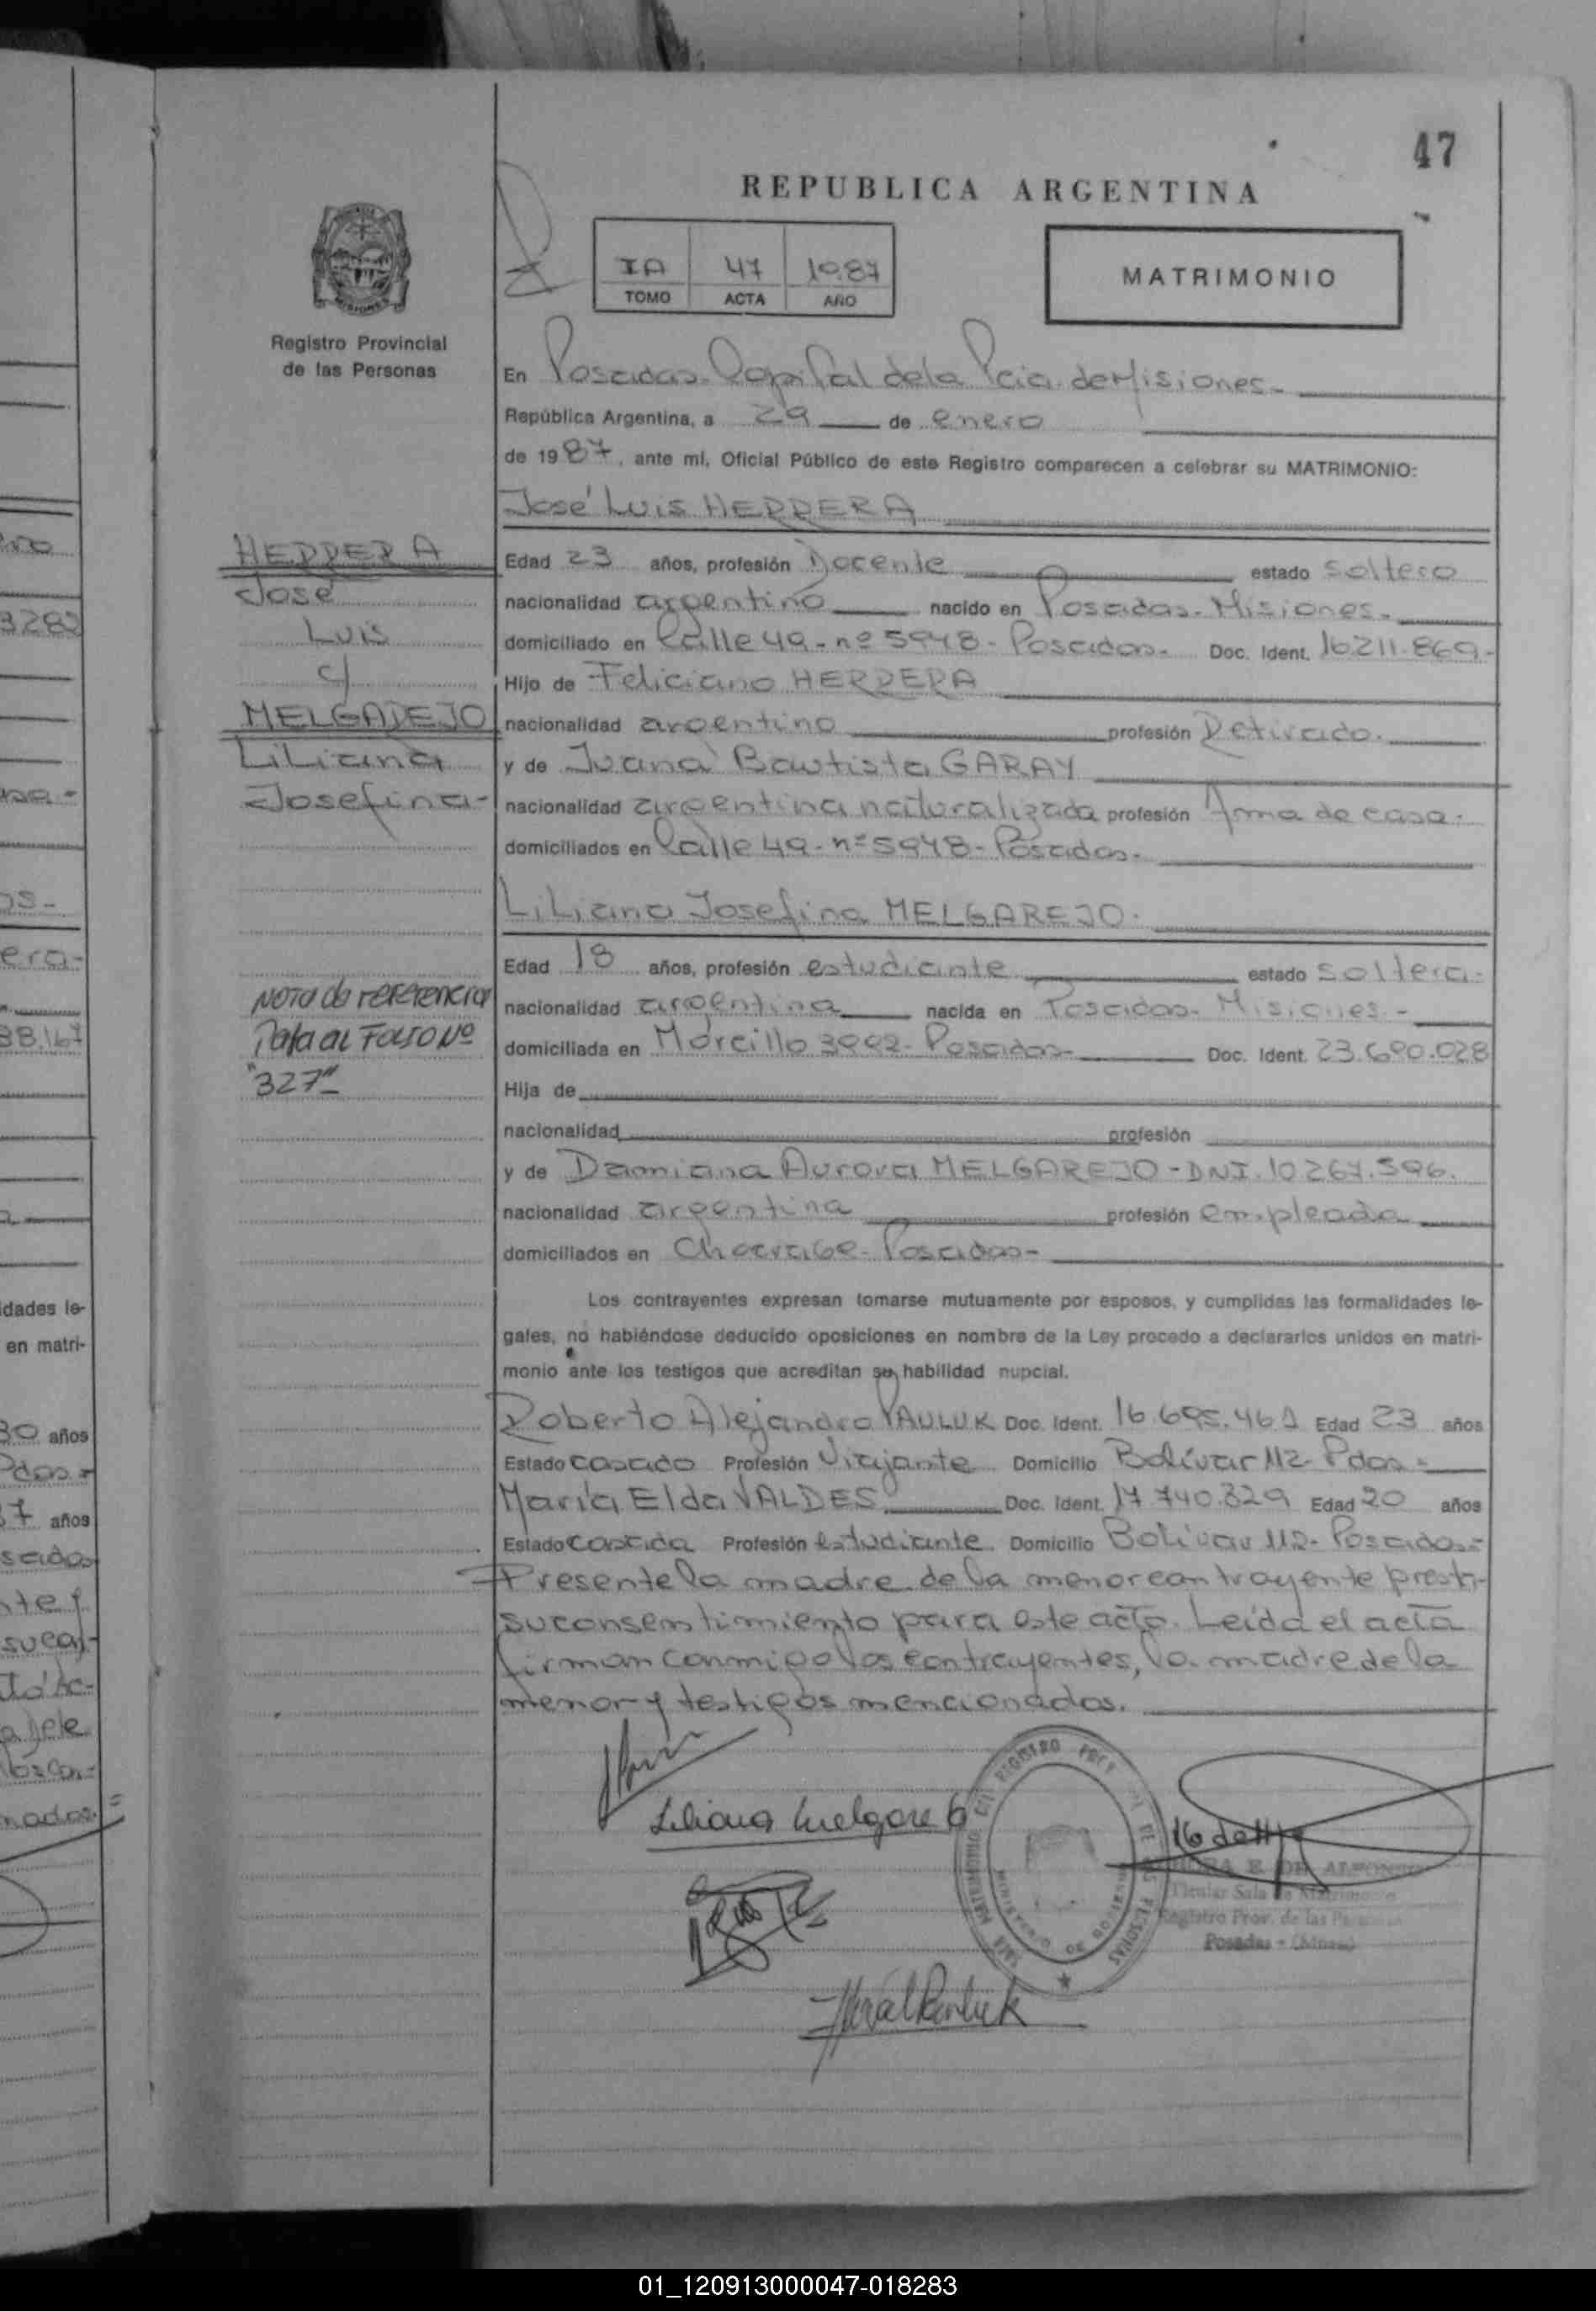 47
REPUBLICA ARGENTINA
IA 47 1987
TOMO ACTA AÑO
MATRIMONIO
Registro Provincial
de las Personas
En Posadas-Capital de la Pcia. de Misiones-
República Argentina, a 29 de enero
de 1987, ante mí, Oficial Público de este Registro comparecen a celebrar su MATRIMONIO:
José Luis HERRERA
HERRERA
José
Luis
c/
MELGAREJO
Liliana
Josefina-
Edad 23 años, profesión Docente estado soltero
nacionalidad argentino nacido en Posadas-Misiones-
domiciliado en Calle 49-nº 5948-Posadas- Doc. Ident. 16.211.869-
Hijo de Feliciano HERRERA
nacionalidad argentino profesión Retirado.
y de Juana Bautista GARAY
nacionalidad argentina naturalizada profesión Ama de casa-
domiciliados en Calle 49-nº 5948-Posadas-
Liliana Josefina MELGAREJO.
Edad 18 años, profesión estudiante estado soltera-
nacionalidad argentina nacida en Posadas-Misiones-
domiciliada en Morcillo 3992-Posadas- Doc. Ident. 23.690.028
Nota de referencia
Pasa al Folio Nº
"327"
Hija de
nacionalidad profesión
y de Damiana Aurora MELGAREJO-DNI.10.267.596.
nacionalidad argentina profesión empleada
domiciliados en Posadas-
Los contrayentes expresan tomarse mutuamente por esposos, y cumplidas las formalidades le-
gales, no habiéndose deducido oposiciones en nombre de la Ley procedo a declararlos unidos en matri-
monio ante los testigos que acreditan su habilidad nupcial.
Roberto Alejandro PAULUK Doc. Ident. 16.695.461 Edad 23 años
Estado casado Profesión Viajante Domicilio Bolívar 112-Pdas-
María Elda VALDES Doc. Ident. 17.740.329 Edad 20 años
Estado casada Profesión estudiante Domicilio Bolívar 112-Posadas-
Presente la madre de la menor contrayente presta
su consentimiento para este acto. Leída el acta
firman conmigo los contrayentes, la madre de la
menor y testigos mencionados.
Liliana Melgarejo
E. DE ALFONSO
Titular Sala de Matrimonio
Registro Prov. de las Personas
Posadas - (Mnes)
3283
38.167
idades le-
en matri-
30 años
Pdas-
37 años
01_120913000047-018283